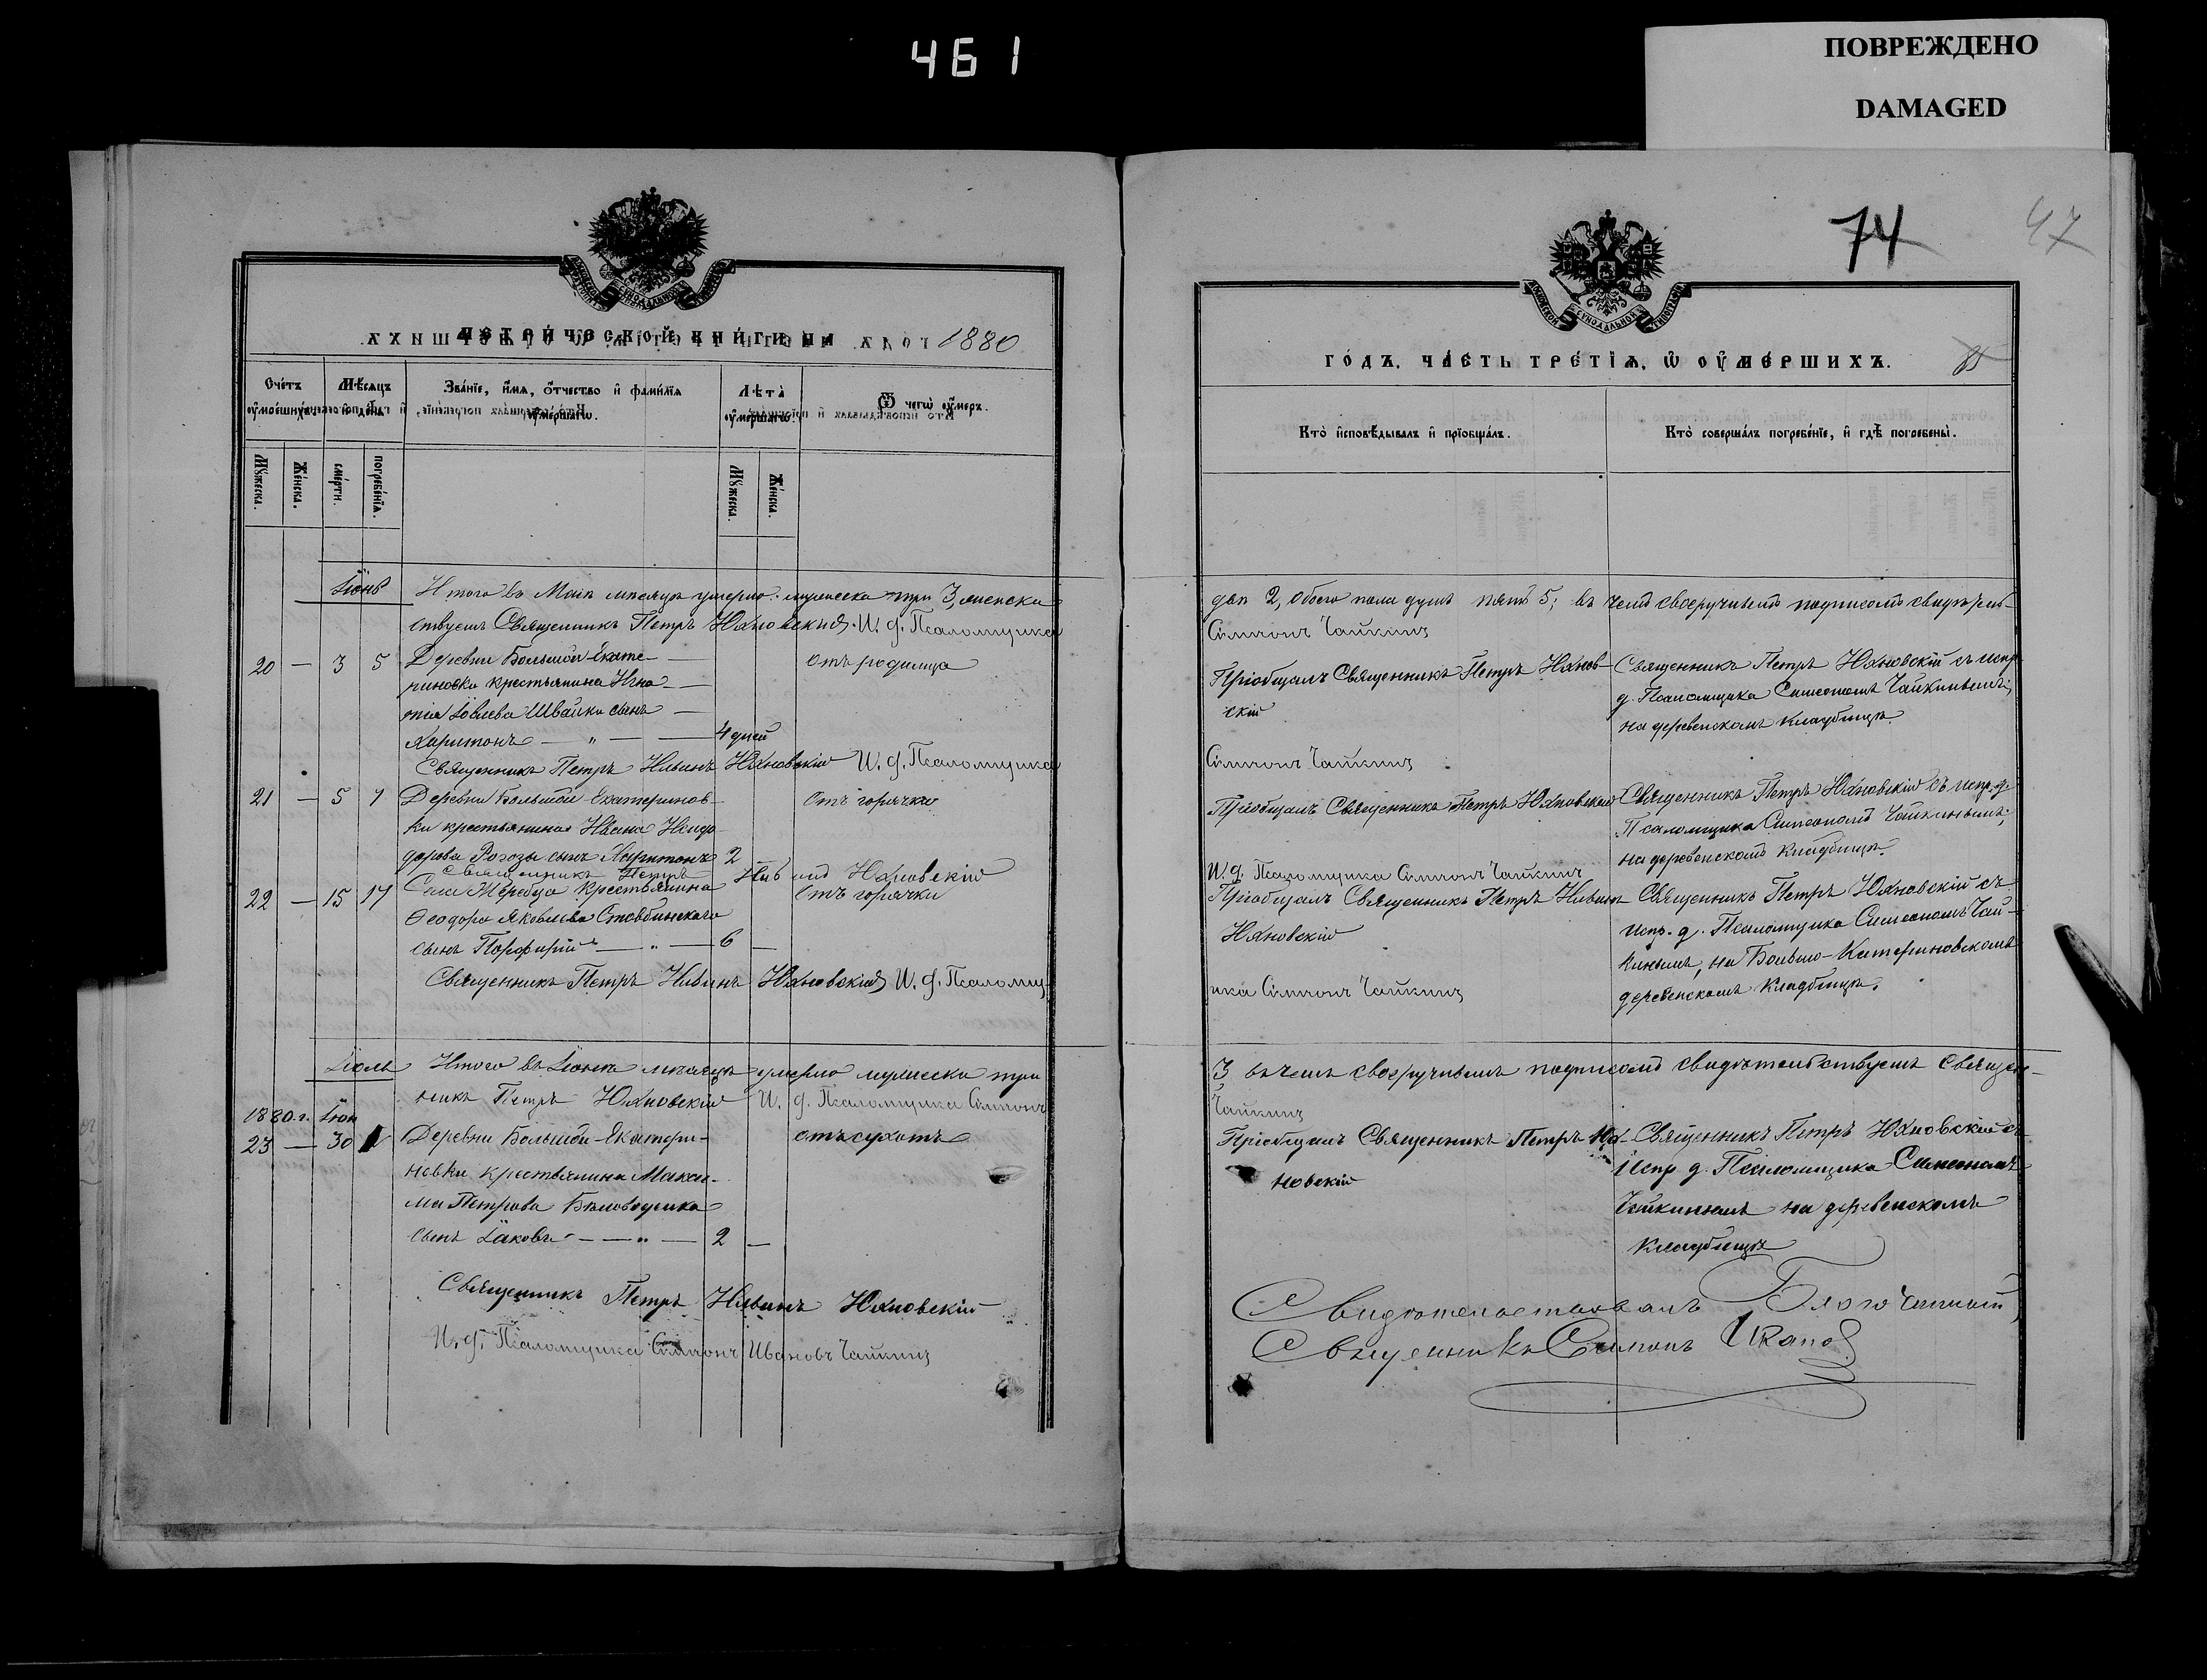 461
ПОВРЕЖДЕНО
DAMAGED
74
47
МЕТРИЧЕСКОЙ КНИГИ НА 1880
Счетъ умершихъ.
Мѣсяцъ и день
Званіе, имя, отчество и фамилія умершагѡ.
Лѣта умершагѡ.
Ѿ чегѡ умеръ.
Мужеска.
Женска.
смерти.
погребенія.
Мужеска.
Женска.
Іюнь
Итого въ Маѣ мѣсяцѣ умерло: мужеска три 3, женска
ствуемъ Священникъ Петръ Юхновскій. И. д. Псаломщика
20 — 3 5 Деревни Большой Екате- Отъ родимца
риновки крестьянина Игна-
тія Іовлева Швайки сынъ
Харитонъ — „ — 4 дней
Священникъ Петръ Ильинъ Юхновскій И. д. Псаломщика
21 — 5 7 Деревни Большой-Екатеринов- Отъ горячки
ки крестьянина Ивана Исидо-
дорова Рогозы сынъ Харитонъ 2
Священникъ Петръ Ильинъ Юхновскій
22 — 15 17 Села Жеребца крестьянина Отъ горячки
Ѳеодора Яковлева Стовбинскаго
сынъ Порфирій — „ — 6 —
Священникъ Петръ Ильинъ Юхновскій И. д. Псаломщ-
Іюль
Итого въ Іюнѣ мѣсяцѣ умерло мужеска три
никъ Петръ Юхновскій И. д. Псаломщика Симеонъ
1880 г. Іюн
23 — 30 Деревни Большой-Екатери- отъ сухотъ
новки крестьянина Макси-
ма Петрова Бѣловоденка
сынъ Іаковъ — „ — 2 —
Священникъ Петръ Ильинъ Юхновскій
И. д. Псаломщика Симеонъ Ивановъ Чайкинъ
ГОДЪ, ЧАСТЬ ТРЕТІЯ, Ѡ ОУМЕРШИХЪ.
Кто исповѣдывалъ и пріобщалъ.
Кто совершалъ погребеніе, и гдѣ погребены.
двѣ 2, обоего пола душъ пять 5; въ чемъ своеручнымъ подписомъ свидѣтель-
Симеонъ Чайкинъ
Пріобщалъ Священникъ Петръ Юхнов-
скій
Священникъ Петръ Юхновскій съ испр.
д. Псаломщика Симеономъ Чайкинымъ,
на деревенскомъ кладбищѣ.
Симеонъ Чайкинъ
Пріобщалъ Священникъ Петръ Юхновскій
Священникъ Петръ Юхновскій съ испр. д.
Псаломщика Симеономъ Чайкинымъ,
на деревенскомъ кладбищѣ.
И. д. Псаломщика Симеонъ Чайкинъ
Пріобщалъ Священникъ Петръ Ильинъ
Юхновскій
Священникъ Петръ Юхновскій съ
испр. д. Псаломщика Симеономъ Чай-
кинымъ, на Больше-Катериновскомъ
деревенскомъ кладбищѣ.
ика Симеонъ Чайкинъ
3, въ чемъ своеручнымъ подписомъ свидѣтельствуемъ Священ-
Чайкинъ
Пріобщалъ Священникъ Петръ Юх-
новскій
Священникъ Петръ Юхновскій съ
испр. д. Псаломщика Симеономъ
Чайкинымъ на деревенскомъ
кладбищѣ
Свидѣтельствовалъ Благочинный,
Священникъ Симонъ